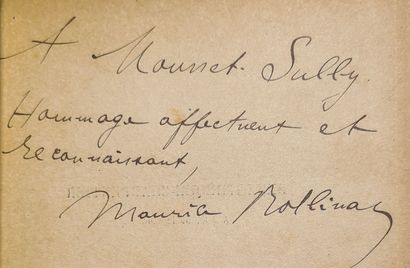 A Mounet-Sully
Hommage affectueux et
reconnaissant,
Maurice Rollinat